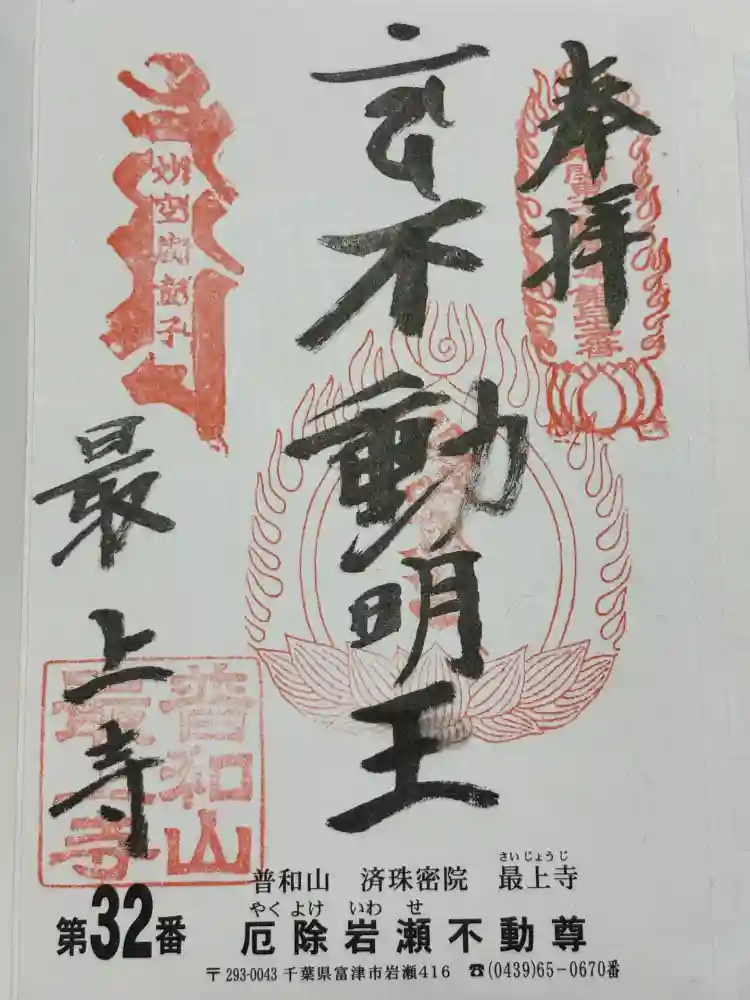 奉拝
不動明王
最上寺
普和山
最上寺
普和山 済珠密院 最上寺
さいじょうじ
第32番
厄除岩瀬不動尊
やくよけ いわせ
〒293-0043 千葉県富津市岩瀬416 ☎(0439)65-0670番